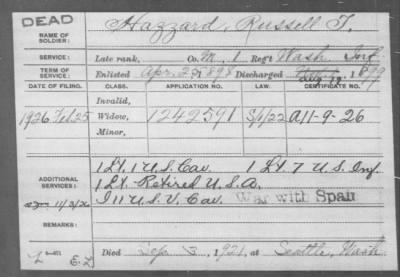 DEAD
NAME OF SOLDIER: Hazzard, Russell T.
SERVICE: Late rank, Co. M, 1 Reg't Wash Inf
TERM OF SERVICE: Enlisted Apr. 25 1898 Discharged 1899
DATE OF FILING. CLASS. APPLICATION NO. LAW. CERTIFICATE NO.
Invalid,
1926 Feb 25 Widow, 1242591 5/1/22 A11-9-26
Minor,
ADDITIONAL SERVICES: 1 Lt. 1 U.S. Cav 1 Lt. 7 U.S. Inf.
1 Lt. Retired U.S.A.
I 11 U.S.V. Cav. War with Spain
11/3/26
REMARKS:
Died Sep 1921, at Seattle, Wash
E.L